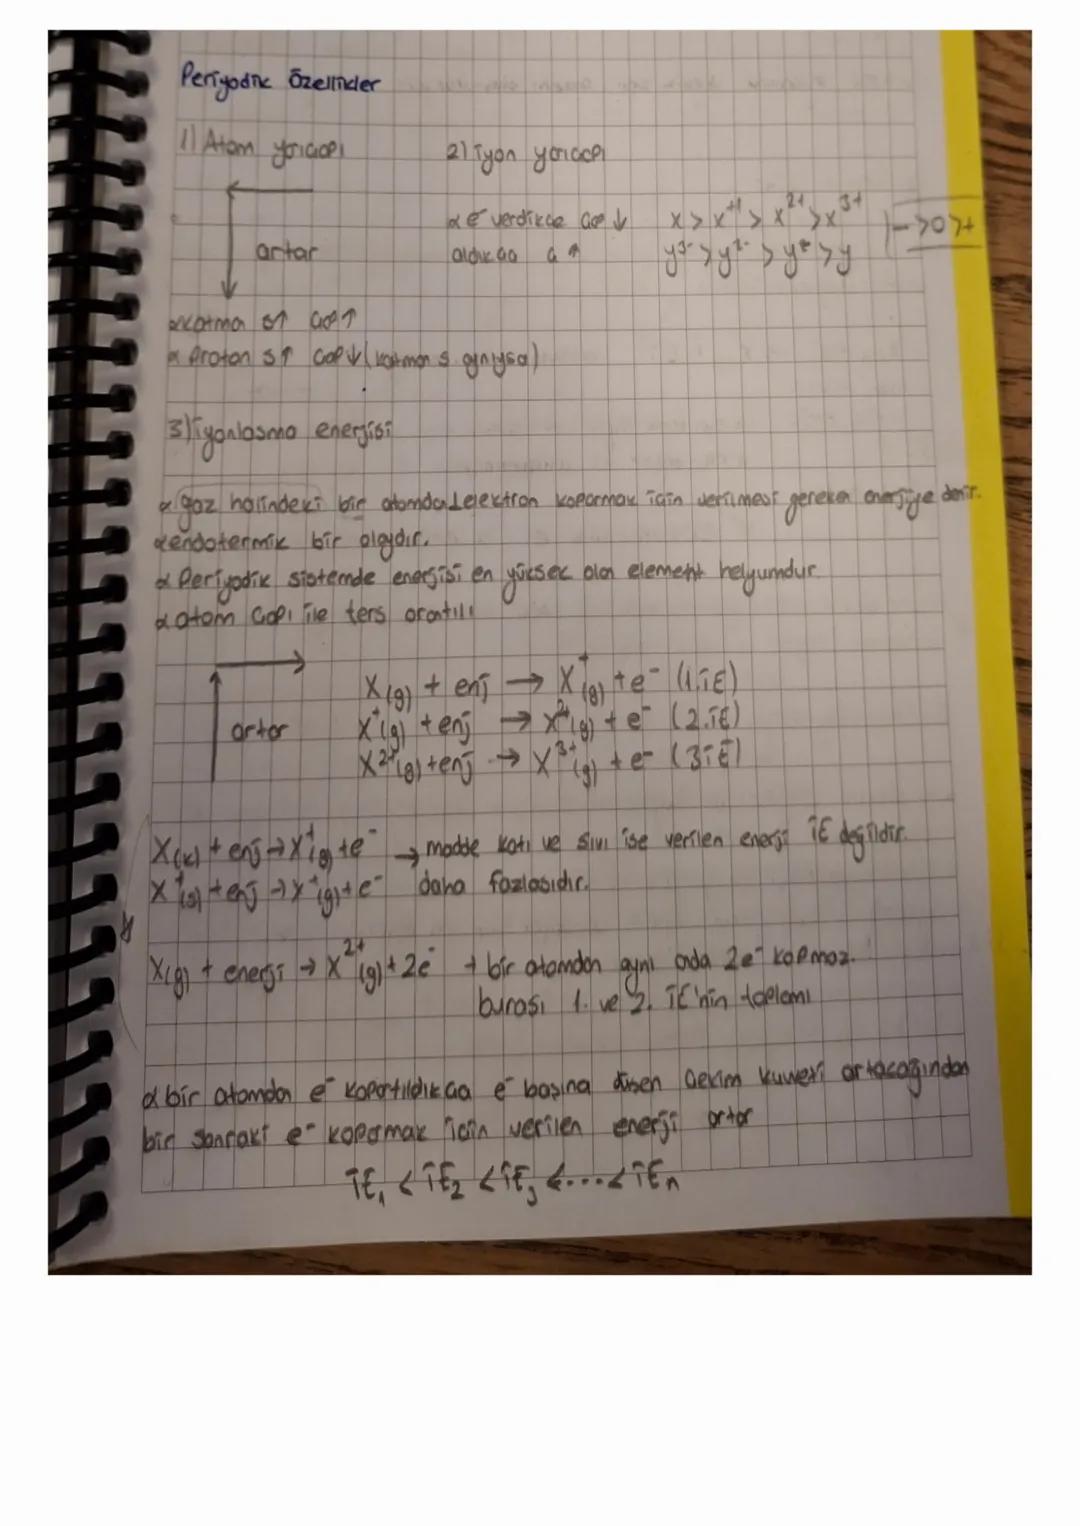 Periyodik Özellikler
1) Atom yarıçapı
2) İyon yarıçapı
artar
α e⁻ verdikçe çap ↓ x > x⁺¹ > x²⁺ > x³⁺
aldıkça ç ↑ y³⁻ > y²⁻ > y⁻ > y
- > 0 > +
α katman s↑ çap↑
α proton s↑ çap↓ (katman s. aynıysa)
3) İyonlaşma enerjisi
α gaz halindeki bir atomdan 1 elektron koparmak için verilmesi gereken enerjiye denir.
α endotermik bir olaydır.
α Periyodik sistemde enerjisi en yüksek olan element helyumdur
α atom çapı ile ters orantılı
artar
X(g) + enj → X⁺(g) + e⁻ (1.İE)
X⁺(g) + enj → X²⁺(g) + e⁻ (2.İE)
X²⁺(g) + enj → X³⁺(g) + e⁻ (3İE)
X(k) + enj → X⁺(g) + e⁻ → madde katı ve sıvı ise verilen enerji İE değildir.
X⁺(s) + enj → X⁺(g) + e⁻ daha fazlasıdır.
X(g) + enerji → X²⁺(g) + 2e⁻ → bir atomdan aynı anda 2e⁻ kopmaz.
burası 1. ve 2. İE'nin toplamı
α bir atomdan e⁻ kopartıldıkça e⁻ başına düşen çekim kuvveti artacağından
bir sonraki e⁻ koparmak için verilen enerji artar
İE₁ < İE₂ < İE₃ < ... < İEn